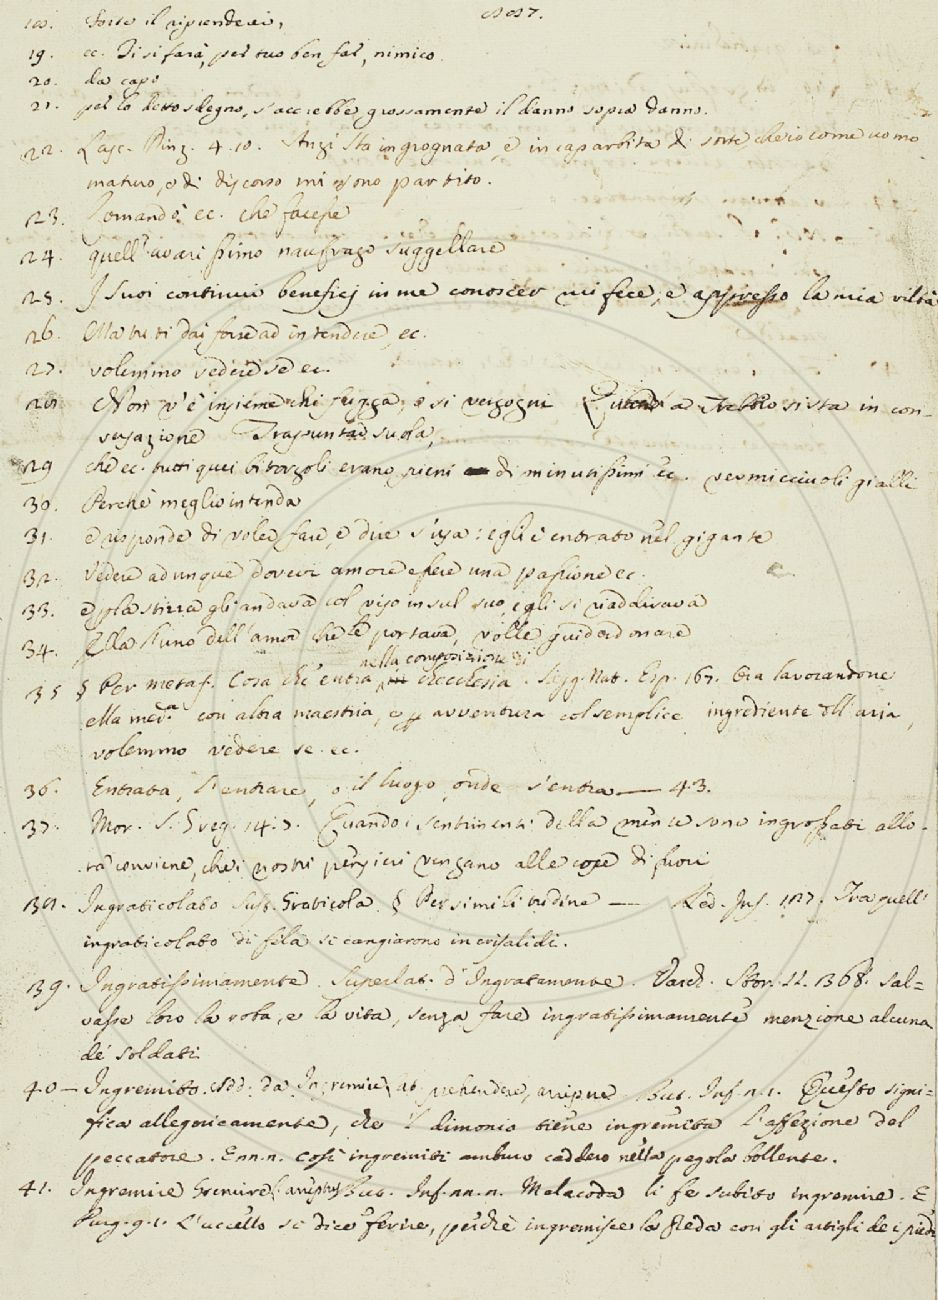 18. Forse il riprenderei,
19. ec. Ti si farà, pel tuo ben far, nimico.
20. da capo
21. per lo detto sdegno, s'accrebbe grossamente il danno sopra danno.
22. Lasc. Pinz. 4. 10. Anzi sta ingrognata, e incaparbita di sorte che io come uomo
maturo, e di discorso mi sono partito.
23. Domandò ec. che facesse
24. quell'avarissimo naufrago suggellare
25. I suoi continui beneficj in me conoscer mi fece, e appresso la mia viltà
26. Ma tu ti dai forse ad intendere, ec.
27. volemmo vedere se ec.
28. Non v'è insieme chi fugga, e si vergogni a Trebbio si sta in con-
versazione Trapuntar suola,
29 che ec. tutti quei bitorzoli erano pieni di minutissimi ec. vermicciuoli gialli
30. Perchè meglio intenda
31. e risponde di voler fare, e dire s'usa: egli è entrato nel gigante
32. Vedere adunque dovevi amore essere una passione ec.
33. e se la stizza gli andava col viso in sul suo, egli si raddirava
34. Ella l'uno dell'amor che le portava, volle guiderdonare
nella composizione di
35 § Per metaf. Cosa ch'entra checchessia. Sagg. Nat. Esp. 167. Ora lavorandone
ella med.a con altra maestria, e per avventura col semplice ingrediente dell'aria,
volemmo vedere se ec.
36. Entrata, l'entrare, o il luogo, onde s'entra — 43.
37. Mor. S. Greg. 14. 7. Quando i sentimenti della mente sono ingrossati allo-
ra conviene, che i nostri pensieri vengano alle cose di fuori
38. Ingraticolato Sust. Graticola. § Per similitudine — Red. Ins. 127. Tra quell'
ingraticolato di fila si cangiarono in crisalidi.
39. Ingratissimamente. Superlat. d'Ingratamente. Varch. Stor. 11. 368. sal=
vasse loro la roba, e la vita, senza fare ingratissimamente menzione alcuna
de' soldati
40 — Ingremito. Add. da Ingremire, lat. prehendere, arripere. But. Inf. Questo signi=
fica allegoricamente, che il dimonio tiene ingremita l'affezione del
peccatore. E così ingremiti amburo caddero nella pegola bollente.
41. Ingremire Gremire, (arripere) But. Inf. Malacoda li fe subito ingremire. E
Purg. 9. 1. L'uccello si dice ferire, perchè ingremisce la preda con gli artigli de i piedi